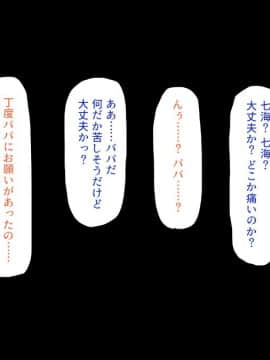 七海？七海？
大丈夫か？どこか痛いのか？
んぅ……？パパ……？
ああ……パパだ
何だか苦しそうだけど
大丈夫かっ？
丁度パパにお願いがあったの……